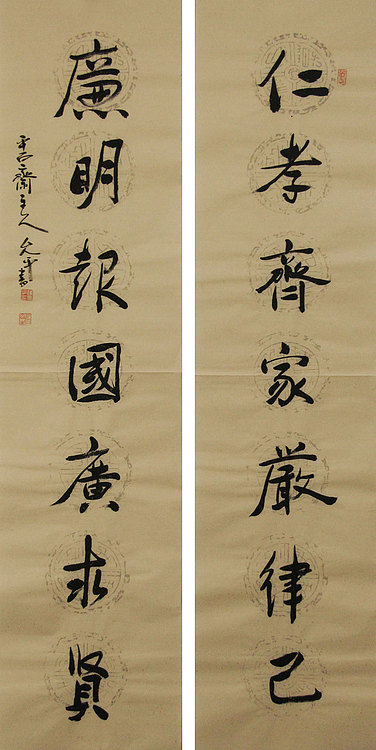 仁孝齊家嚴律己
廉明報國廣求賢
齋主人 書